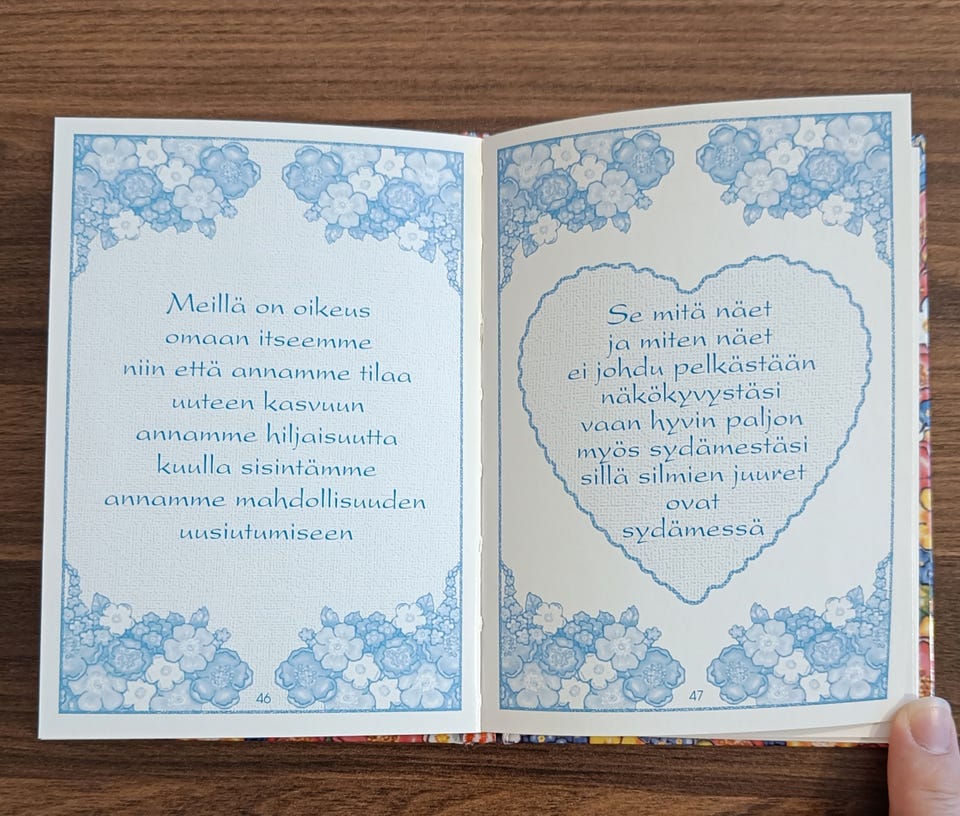 Meillä on oikeus
omaan itseemme
niin että annamme tilaa
uuteen kasvuun
annamme hiljaisuutta
kuulla sisintämme
annamme mahdollisuuden
uusiutumiseen
46
Se mitä näet
ja miten näet
ei johdu pelkästään
näkökyvystäsi
vaan hyvin paljon
myös sydämestäsi
sillä silmien juuret
ovat
sydämessä
47